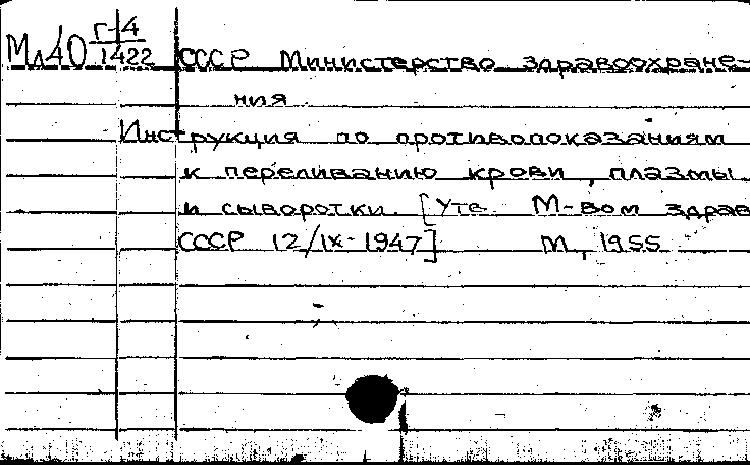 Мл40 Г-4/1422 СССР Министерство здравоохране-
ния.
Инструкция по противопоказаниям
к переливанию крови, плазмы
и сыворотки. [Утв. М-вом здрав
СССР 12/IX-1947] М, 1955